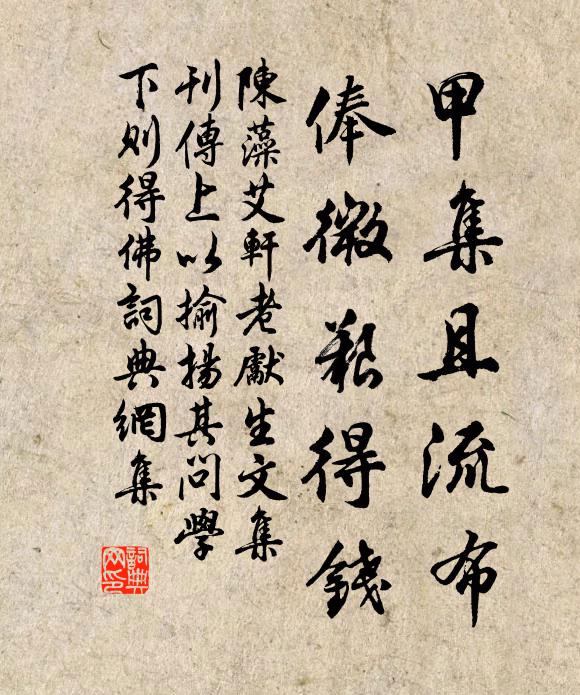 甲集且流布
俸微艱得錢
陳藻艾軒老獻生文集
刊傳上以揄揚其问學
下则得佛詞典網集
詞典网印